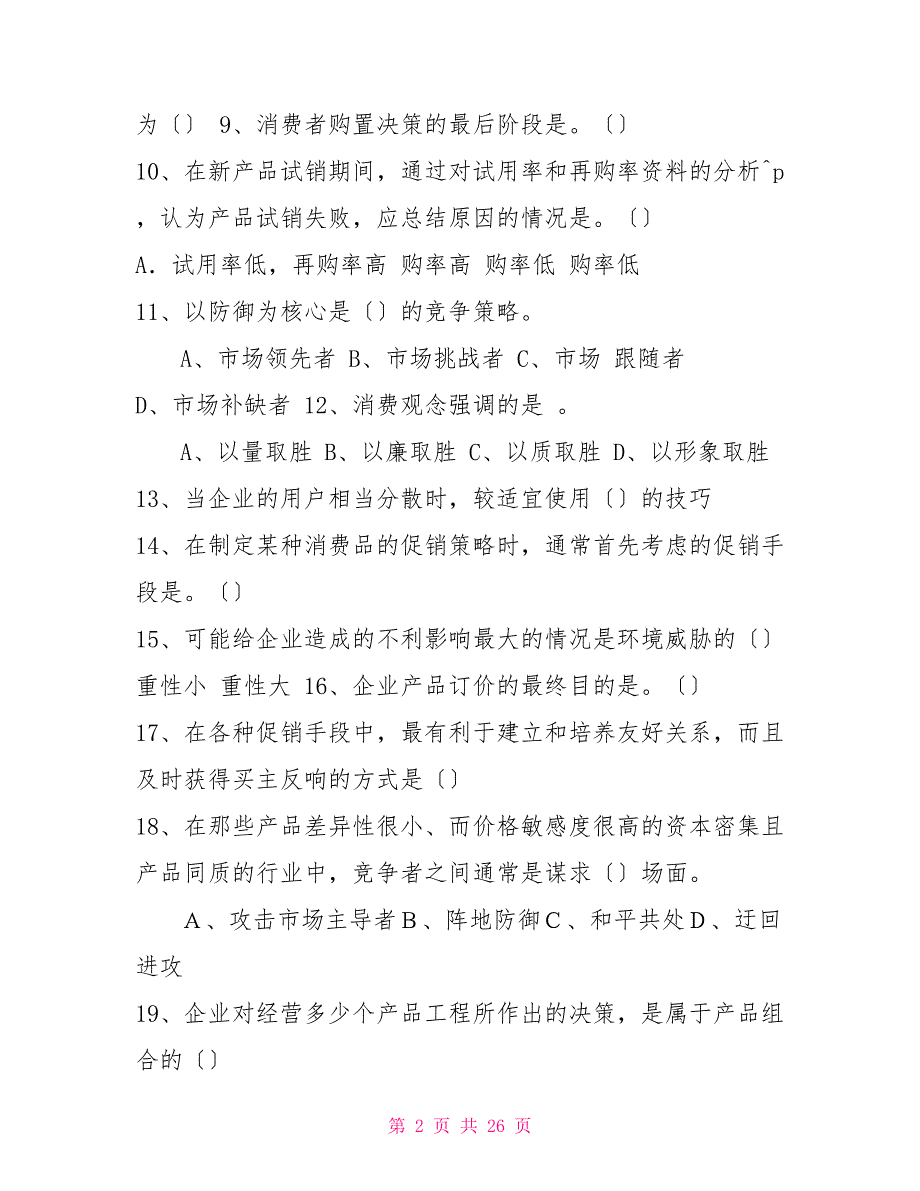 为〔〕 9、消费者购置决策的最后阶段是。〔〕
10、在新产品试销期间，通过对试用率和再购率资料的分析^p
，认为产品试销失败，应总结原因的情况是。〔〕
A．试用率低，再购率高 购率高 购率低 购率低
11、以防御为核心是〔〕的竞争策略。
A、市场领先者 B、市场挑战者 C、市场 跟随者
D、市场补缺者 12、消费观念强调的是 。
A、以量取胜 B、以廉取胜 C、以质取胜 D、以形象取胜
13、当企业的用户相当分散时，较适宜使用〔〕的技巧
14、在制定某种消费品的促销策略时，通常首先考虑的促销手
段是。〔〕
15、可能给企业造成的不利影响最大的情况是环境威胁的〔〕
重性小 重性大 16、企业产品订价的最终目的是。〔〕
17、在各种促销手段中，最有利于建立和培养友好关系，而且
及时获得买主反响的方式是〔〕
18、在那些产品差异性很小、而价格敏感度很高的资本密集且
产品同质的行业中，竞争者之间通常是谋求〔〕场面。
Ａ、攻击市场主导者Ｂ、阵地防御Ｃ、和平共处Ｄ、迂回
进攻
19、企业对经营多少个产品工程所作出的决策，是属于产品组
合的〔〕
第 2 页 共 26 页